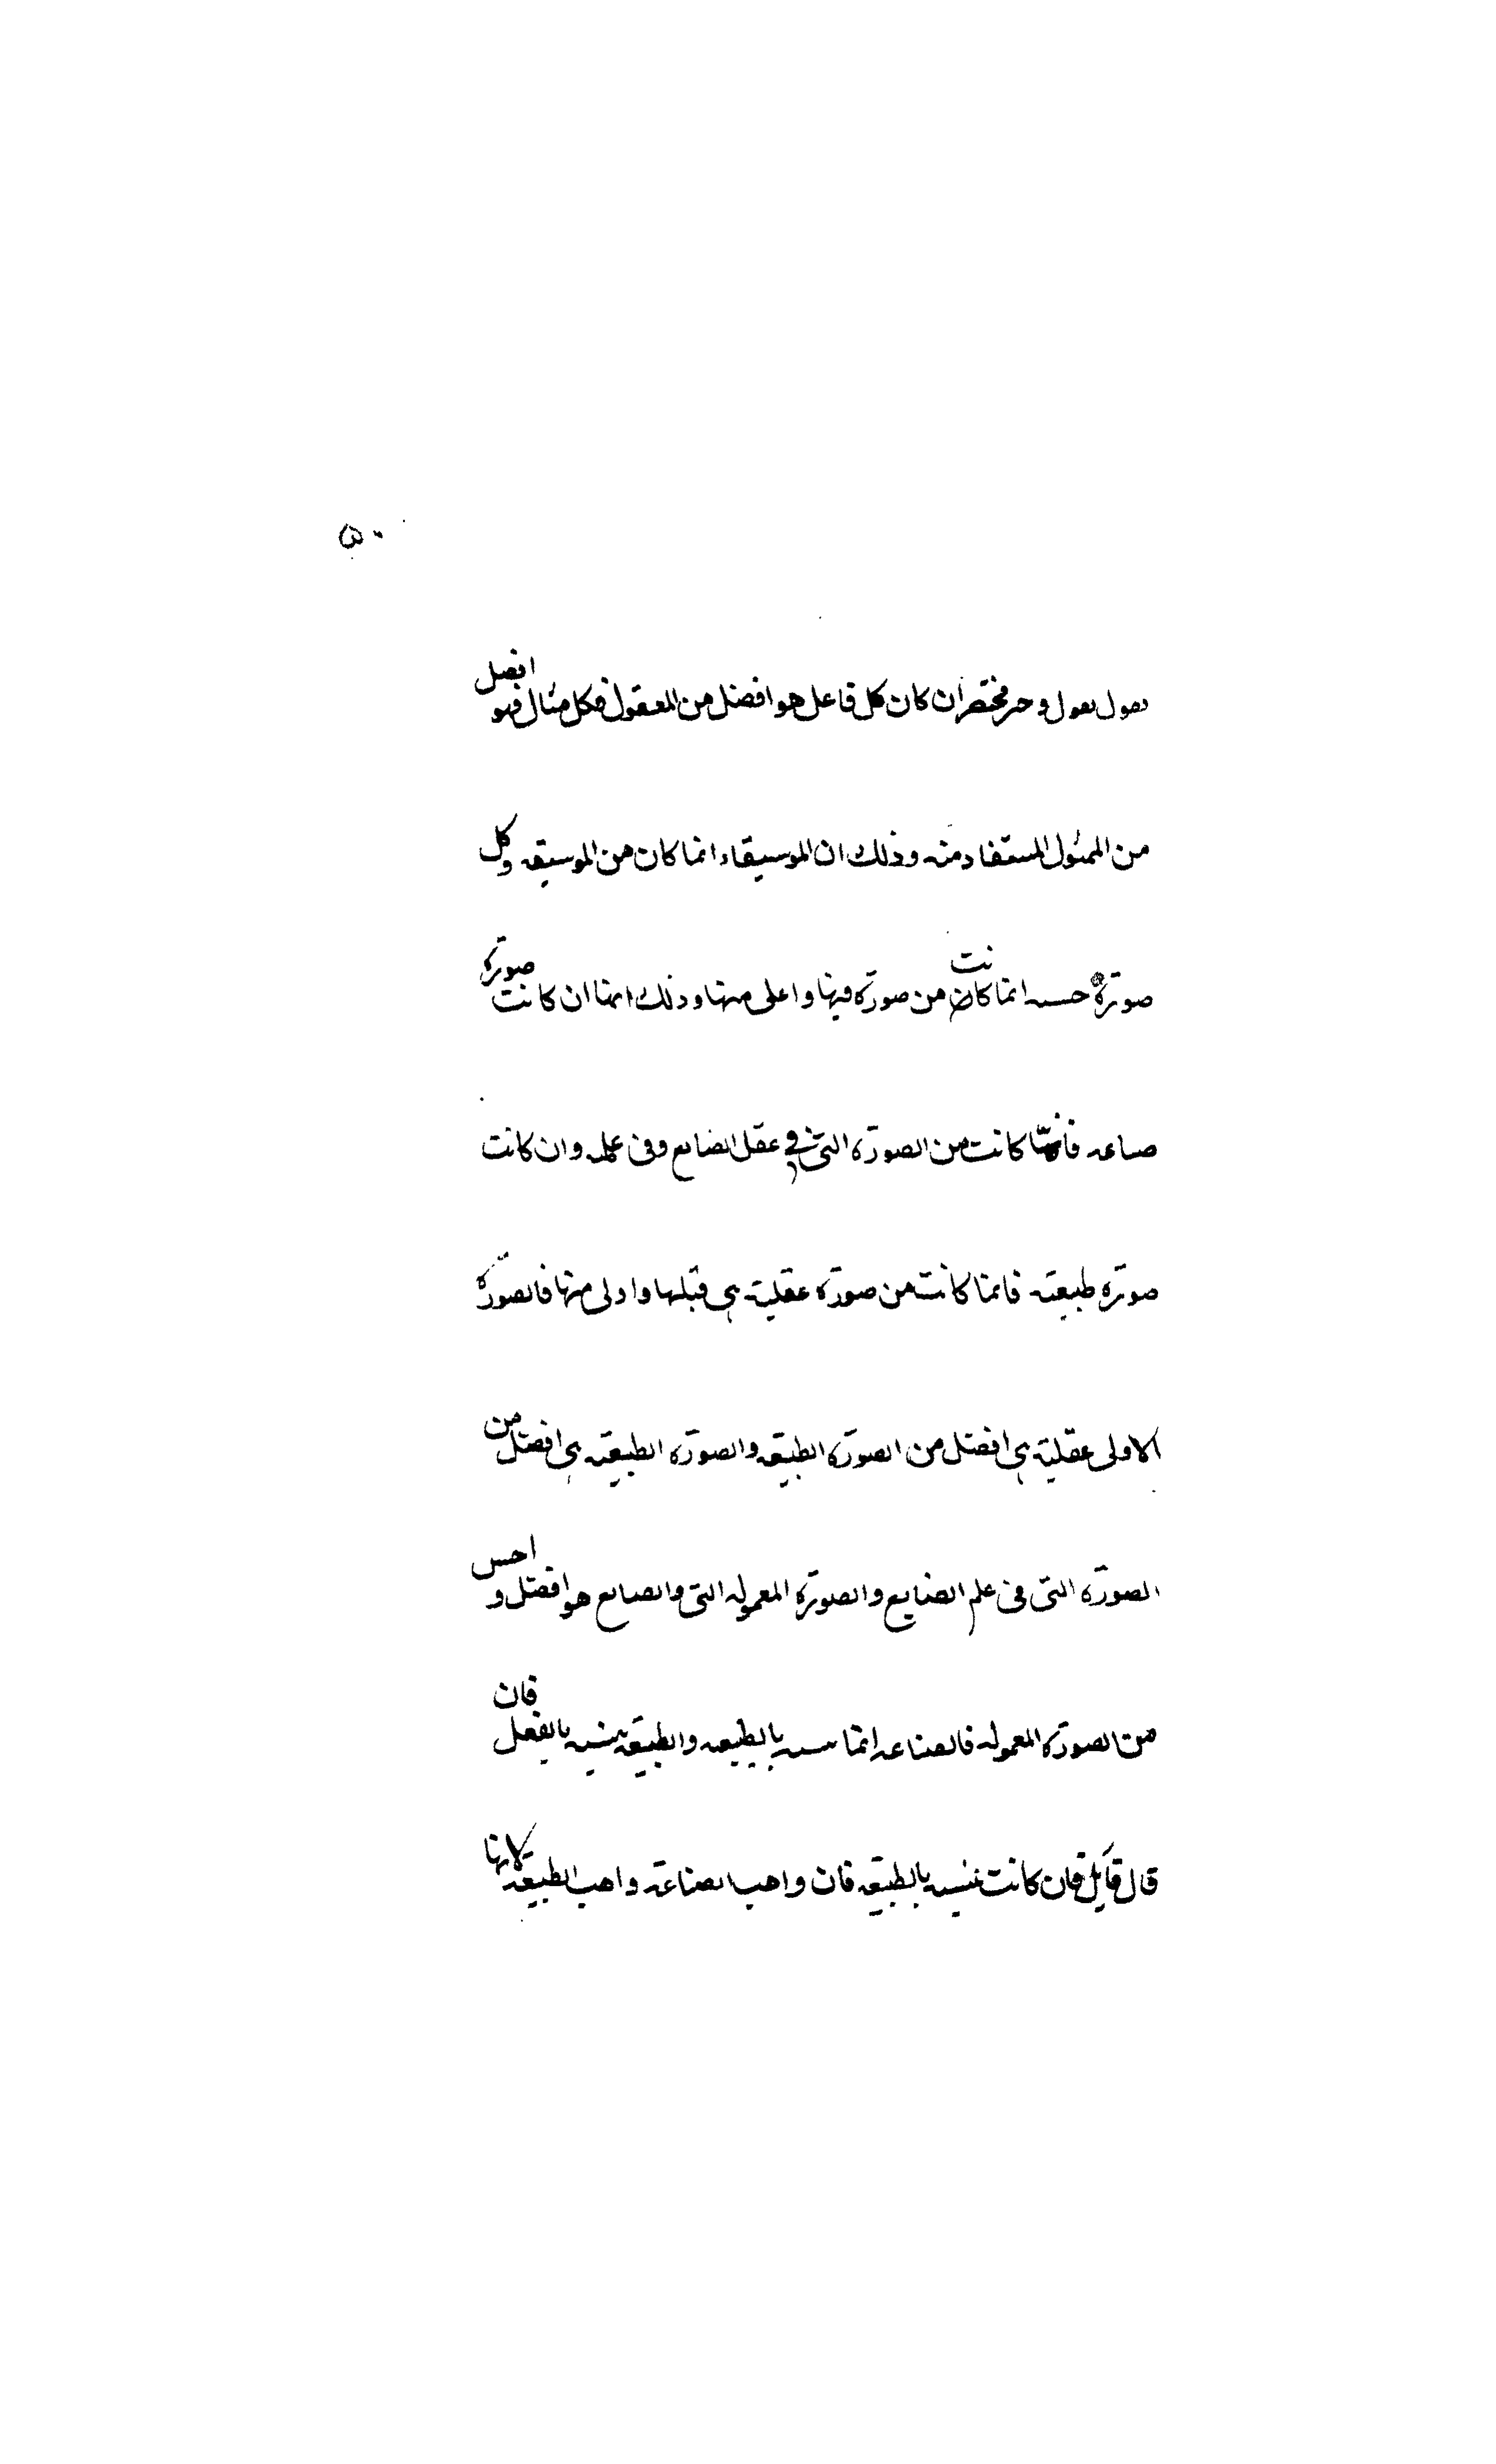 ۵۰
نقول بقول وجيز مختصر ان كان كل فاعل هو افضل من المعقول فكل مثال فهو افضل
من الممثول المستفاد منه وذلك ان الموسيقاء انما كان من الموسيقيه وكل
صورة حسنه انما كانت من صورة فيها واعلى منها وذلك انها ان كانت صورة
صناعيه فانما كانت من الصورة التى فى عقل الصانع وفى علمه وان كانت
صورة طبيعية فانما كانت من صورة عقلية هى قبلها واولى منها فالصورة
الاولى عقلية هى افضل من الصورة الطبيعيه والصورة الطبيعية هى افضل من
الصورة التى فى علم الصنايع والصورة المعموله التى والصانع هو افضل و احسن
من الصورة المعموله فالصناعه انما تتشبه بالطبيعه والطبيعة يتشبه بالفعل فان
قال قايل فان كانت يتشبه بالطبيعه فان واهب الصناعة واهب الطبيعه لانها